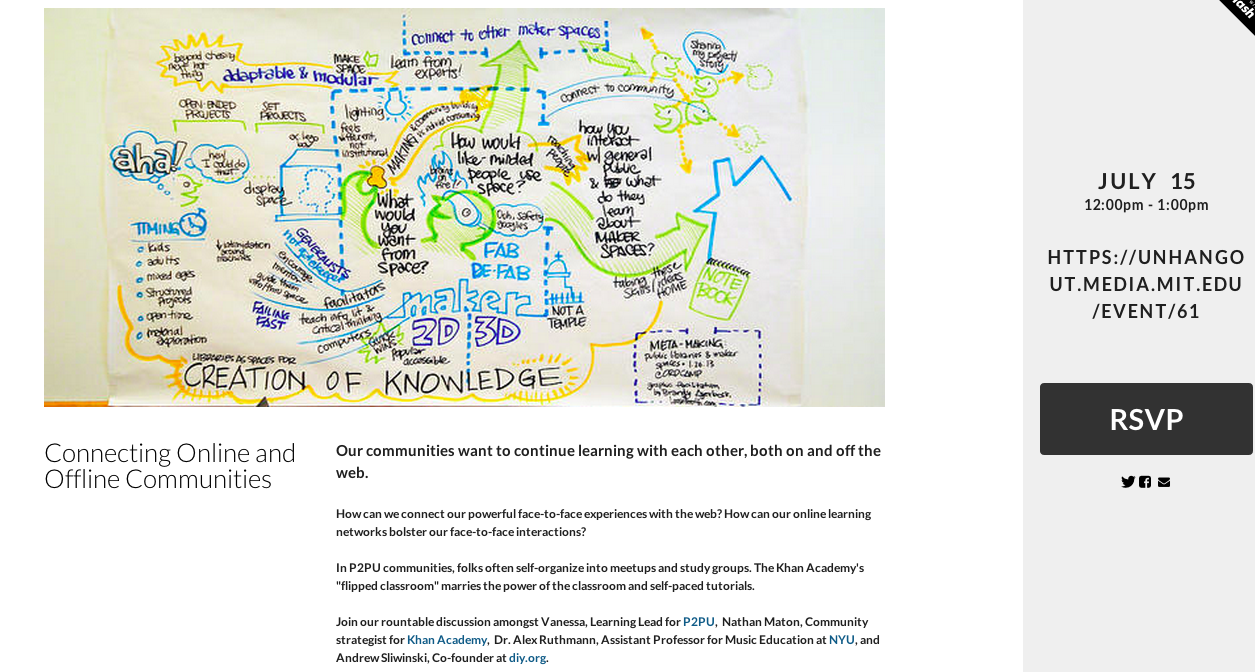 connect to other maker spaces
beyond chasing
next hot
thing
adaptable & modular
MAKE
SPACE
learn from
experts!
sharing
my project/
story
connect to community
OPEN-ENDED
PROJECTS
SET
PROJECTS
lighting
feels
different,
not
institutional
MAKING
How would
like-minded
people use
space?
teaching
people
how you
interact
w/ general
public
& what
do they
learn
about
MAKER
SPACES?
aha!
hey
I could do
that
display
space
What
would
you
want
from
space?
Ooh, safety
goggles
TIMING
kids
adults
mixed ages
structured
projects
open-time
material
exploration
GENERALISTS
not gatekeepers
encourage
mentor
FAILING
FAST
facilitators
teach info lit &
critical thinking
computers
FAB
DE-FAB
maker
2D 3D
popular
accessible
NOT A
TEMPLE
taking these
skills/ideas
HOME
NOTE
BOOK
LIBRARIES AS SPACES FOR
CREATION OF KNOWLEDGE
META-MAKING:
public libraries & maker
spaces • 1.26.13
@ORDCAMP
graphic facilitation
JULY 15
12:00pm - 1:00pm
HTTPS://UNHANGO
UT.MEDIA.MIT.EDU
/EVENT/61
RSVP
Connecting Online and
Offline Communities
Our communities want to continue learning with each other, both on and off the
web.
How can we connect our powerful face-to-face experiences with the web? How can our online learning
networks bolster our face-to-face interactions?
In P2PU communities, folks often self-organize into meetups and study groups. The Khan Academy's
"flipped classroom" marries the power of the classroom and self-paced tutorials.
Join our rountable discussion amongst Vanessa, Learning Lead for P2PU, Nathan Maton, Community
strategist for Khan Academy, Dr. Alex Ruthmann, Assistant Professor for Music Education at NYU, and
Andrew Sliwinski, Co-founder at diy.org.